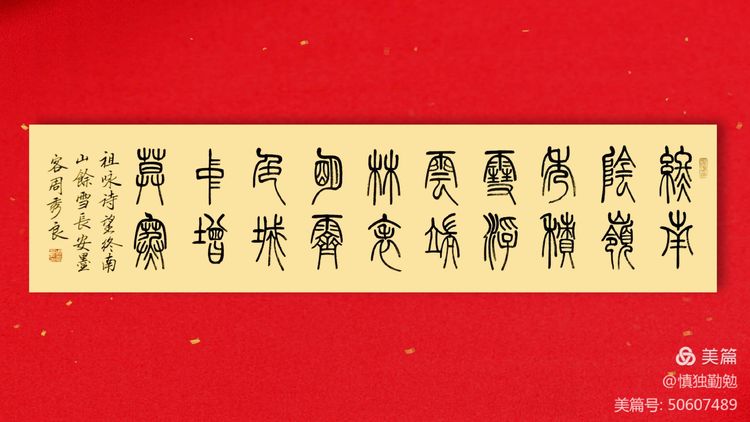 終南
陰嶺
秀積
雪浮
雲端
林表
明霽
色城
中增
莫寒
祖咏诗望终南
山餘雪長安墨
客周秀良
美篇
@慎独勤勉
美篇号: 50607489